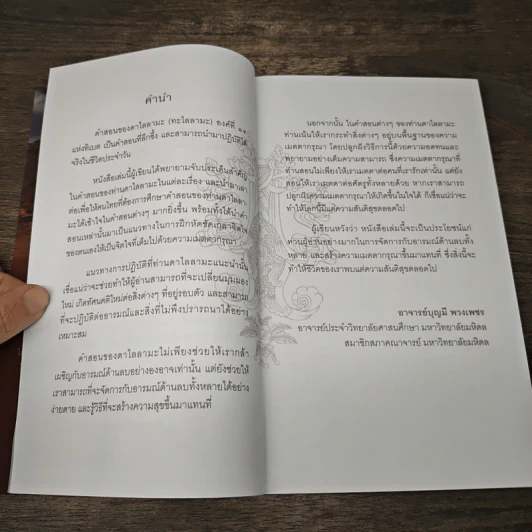 คำนำ
คำสอนของดาไลลามะ (ทะไลลามะ) องค์ที่ ๑๔
แห่งทิเบต เป็นคำสอนที่ลึกซึ้ง และสามารถนำมาปฏิบัติได้
จริงในชีวิตประจำวัน
หนังสือเล่มนี้ผู้เขียนได้พยายามจับประเด็นสำคัญ
ในคำสอนของท่านดาไลลามะในแต่ละเรื่อง และนำมาเล่า
ต่อเพื่อให้คนไทยที่ต้องการศึกษาคำสอนของท่านดาไลลา
มะได้เข้าใจในคำสอนต่างๆ มากยิ่งขึ้น พร้อมทั้งได้นำคำ
สอนเหล่านั้นมาเป็นแนวทางในการฝึกหัดขัดเกลาจิตใจ
ของตนเองให้เป็นจิตใจที่เต็มไปด้วยความเมตตากรุณา
แนวทางการปฏิบัติที่ท่านดาไลลามะแนะนำนั้น
เชื่อแน่ว่าจะช่วยทำให้ผู้อ่านสามารถที่จะเปลี่ยนมุมมอง
ใหม่ เกิดทัศนคติใหม่ต่อสิ่งต่างๆ ที่อยู่รอบตัว และสามารถ
ที่จะปฏิบัติต่ออารมณ์และสิ่งที่ไม่พึงปรารถนาได้อย่าง
เหมาะสม
คำสอนของดาไลลามะไม่เพียงช่วยให้เรากล้า
เผชิญกับอารมณ์ด้านลบอย่างองอาจเท่านั้น แต่ยังช่วยให้
เราสามารถที่จะจัดการกับอารมณ์ด้านลบทั้งหลายได้อย่าง
ง่ายดาย และรู้วิธีที่จะสร้างความสุขขึ้นมาแทนที่
นอกจากนั้น ในคำสอนต่างๆ ของท่านดาไลลามะ
ท่านเน้นให้เรากระทำสิ่งต่างๆ อยู่บนพื้นฐานของความ
เมตตากรุณา โดยปลูกฝังวิธีการนี้ด้วยความอดทนและ
พยายามอย่างเต็มความสามารถ ซึ่งความเมตตากรุณาที่
ท่านสอนไม่เพียงให้เราเมตตาต่อคนที่เรารักเท่านั้น แต่ยัง
สอนให้เราเมตตาต่อศัตรูทั้งหลายด้วย หากเราสามารถ
ปลูกฝังความเมตตากรุณาให้เกิดขึ้นในใจได้ ก็เชื่อแน่ว่าจะ
ทำให้โลกนี้มีแต่ความสันติสุขตลอดไป
ผู้เขียนหวังว่า หนังสือเล่มนี้จะเป็นประโยชน์แก่
ท่านผู้อ่านอย่างมากในการจัดการกับอารมณ์ด้านลบทั้ง
หลาย และสร้างความเมตตากรุณาขึ้นมาแทนที่ ซึ่งสิ่งนี้จะ
ทำให้ชีวิตของเราพบแต่ความสันติสุขตลอดไป
อาจารย์บุญมี พวงเพชร
อาจารย์ประจำวิทยาลัยศาสนศึกษา มหาวิทยาลัยมหิดล
สมาชิกสภาคณาจารย์ มหาวิทยาลัยมหิดล